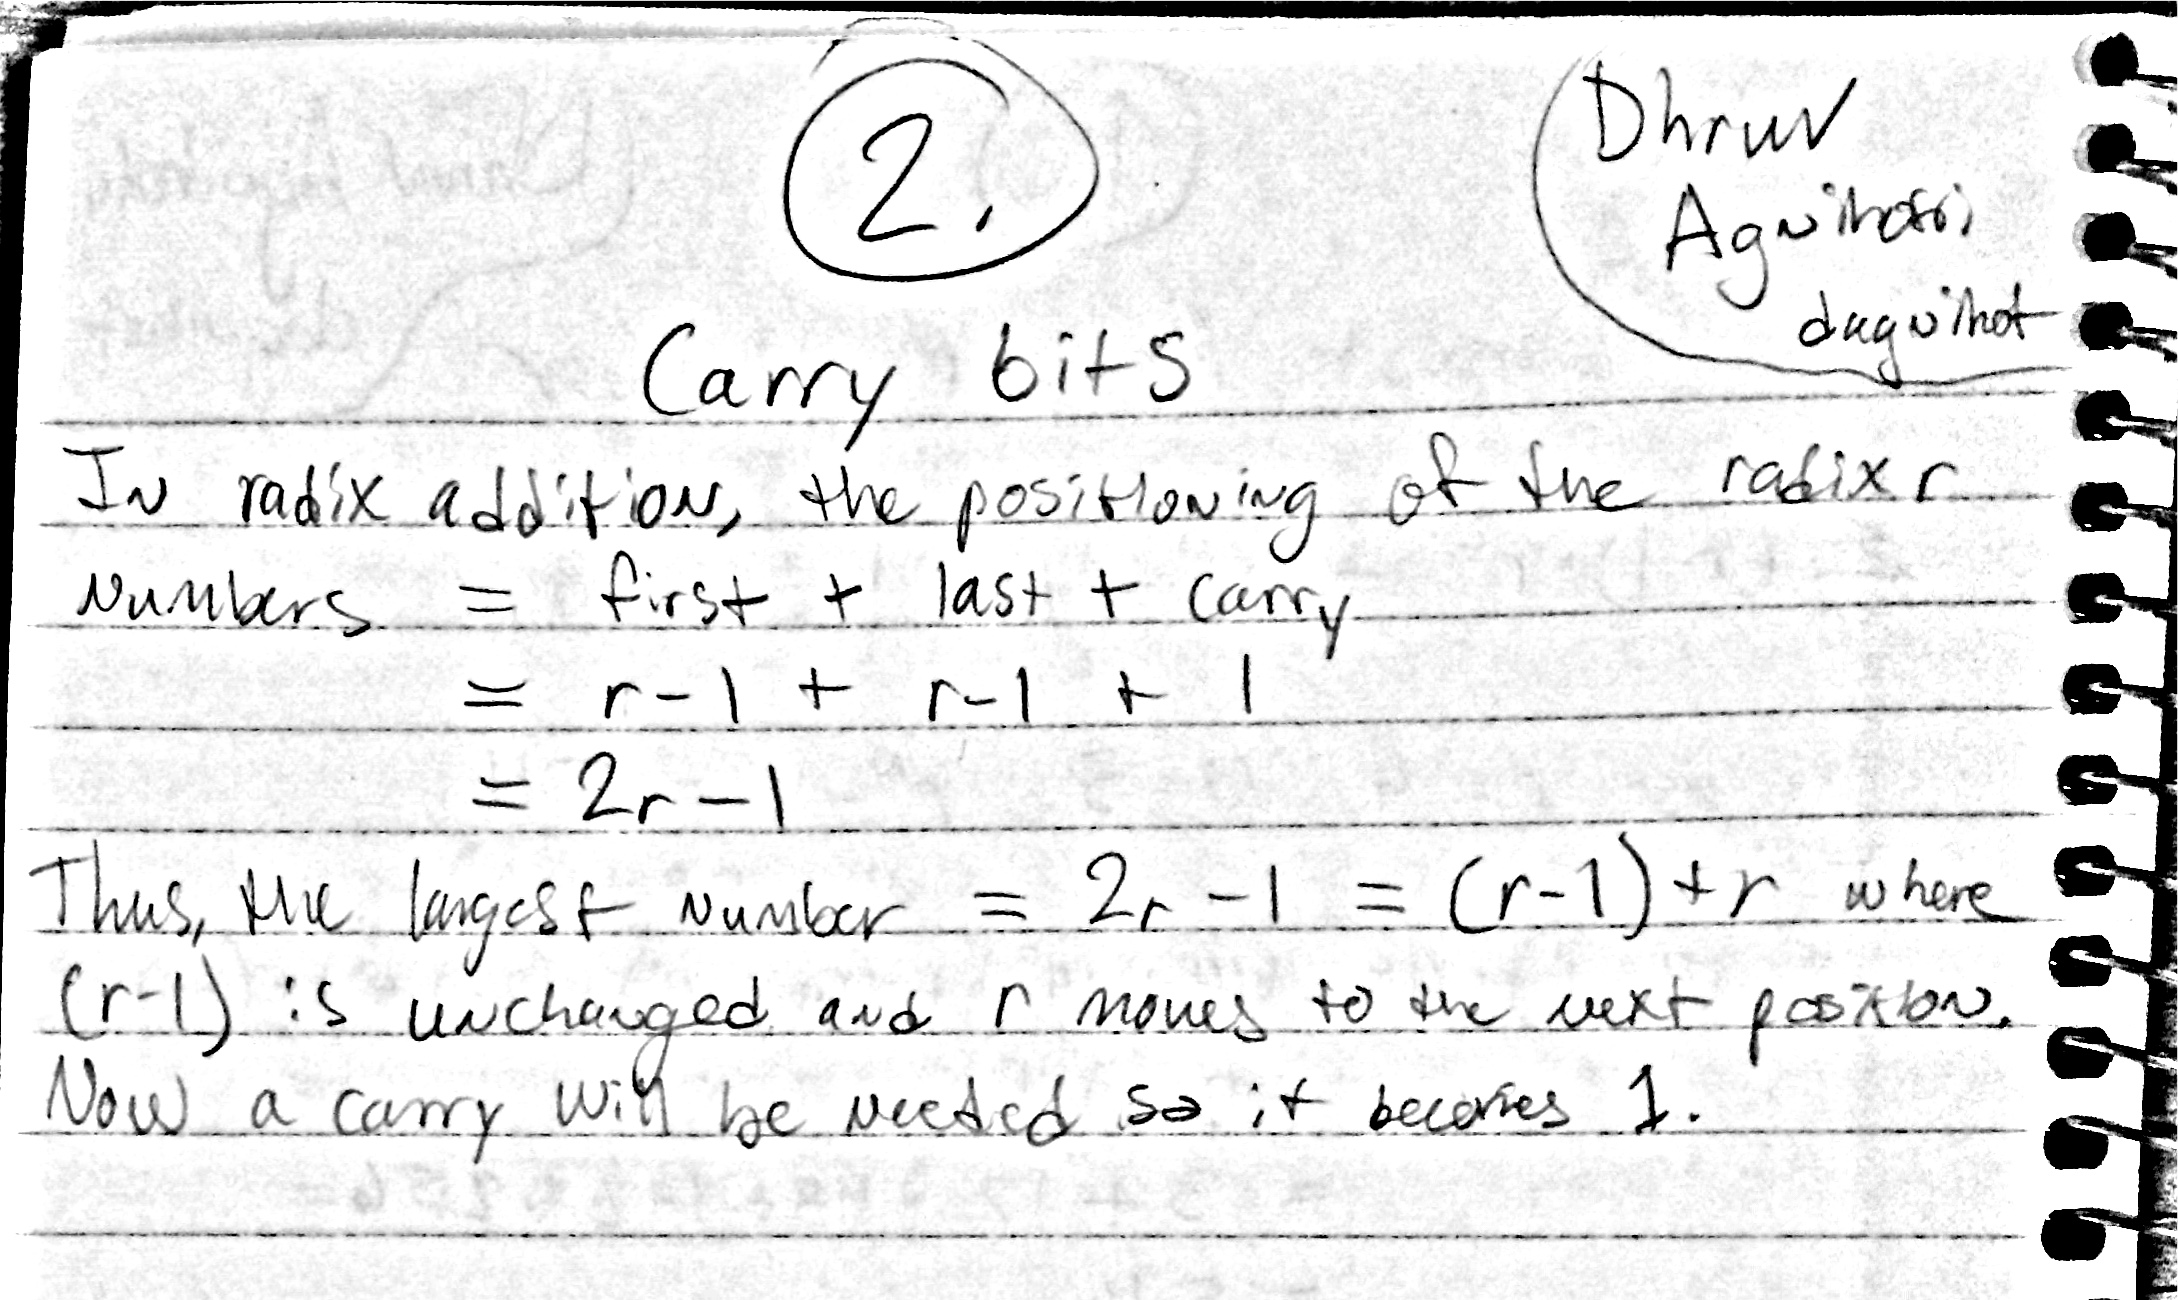 2.
Dhruv
Agnihotri
dagnihot
Carry bits
In radix addition, the positioning of the radix r
numbers = first + last + carry
= r-1 + r-1 + 1
= 2r-1
Thus, the largest number = 2r-1 = (r-1)+r where
(r-1) is unchanged and r moves to the next position.
Now a carry will be needed so it becomes 1.